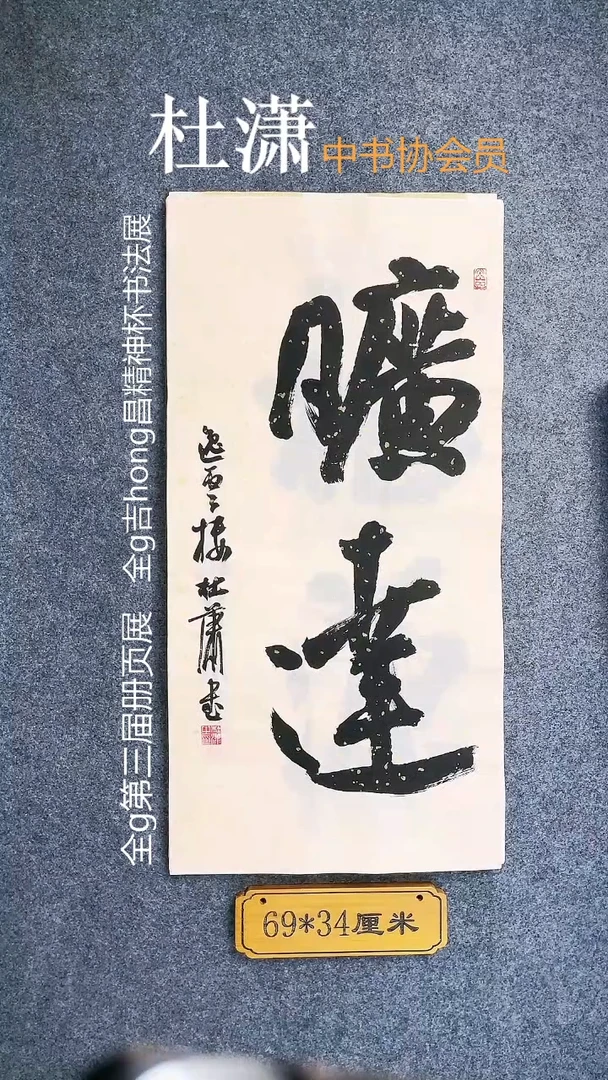 杜潇
中书协会员
全g第三届册页展 全g吉hong昌精神杯书法展
曠達
杜蕭书
69*34厘米